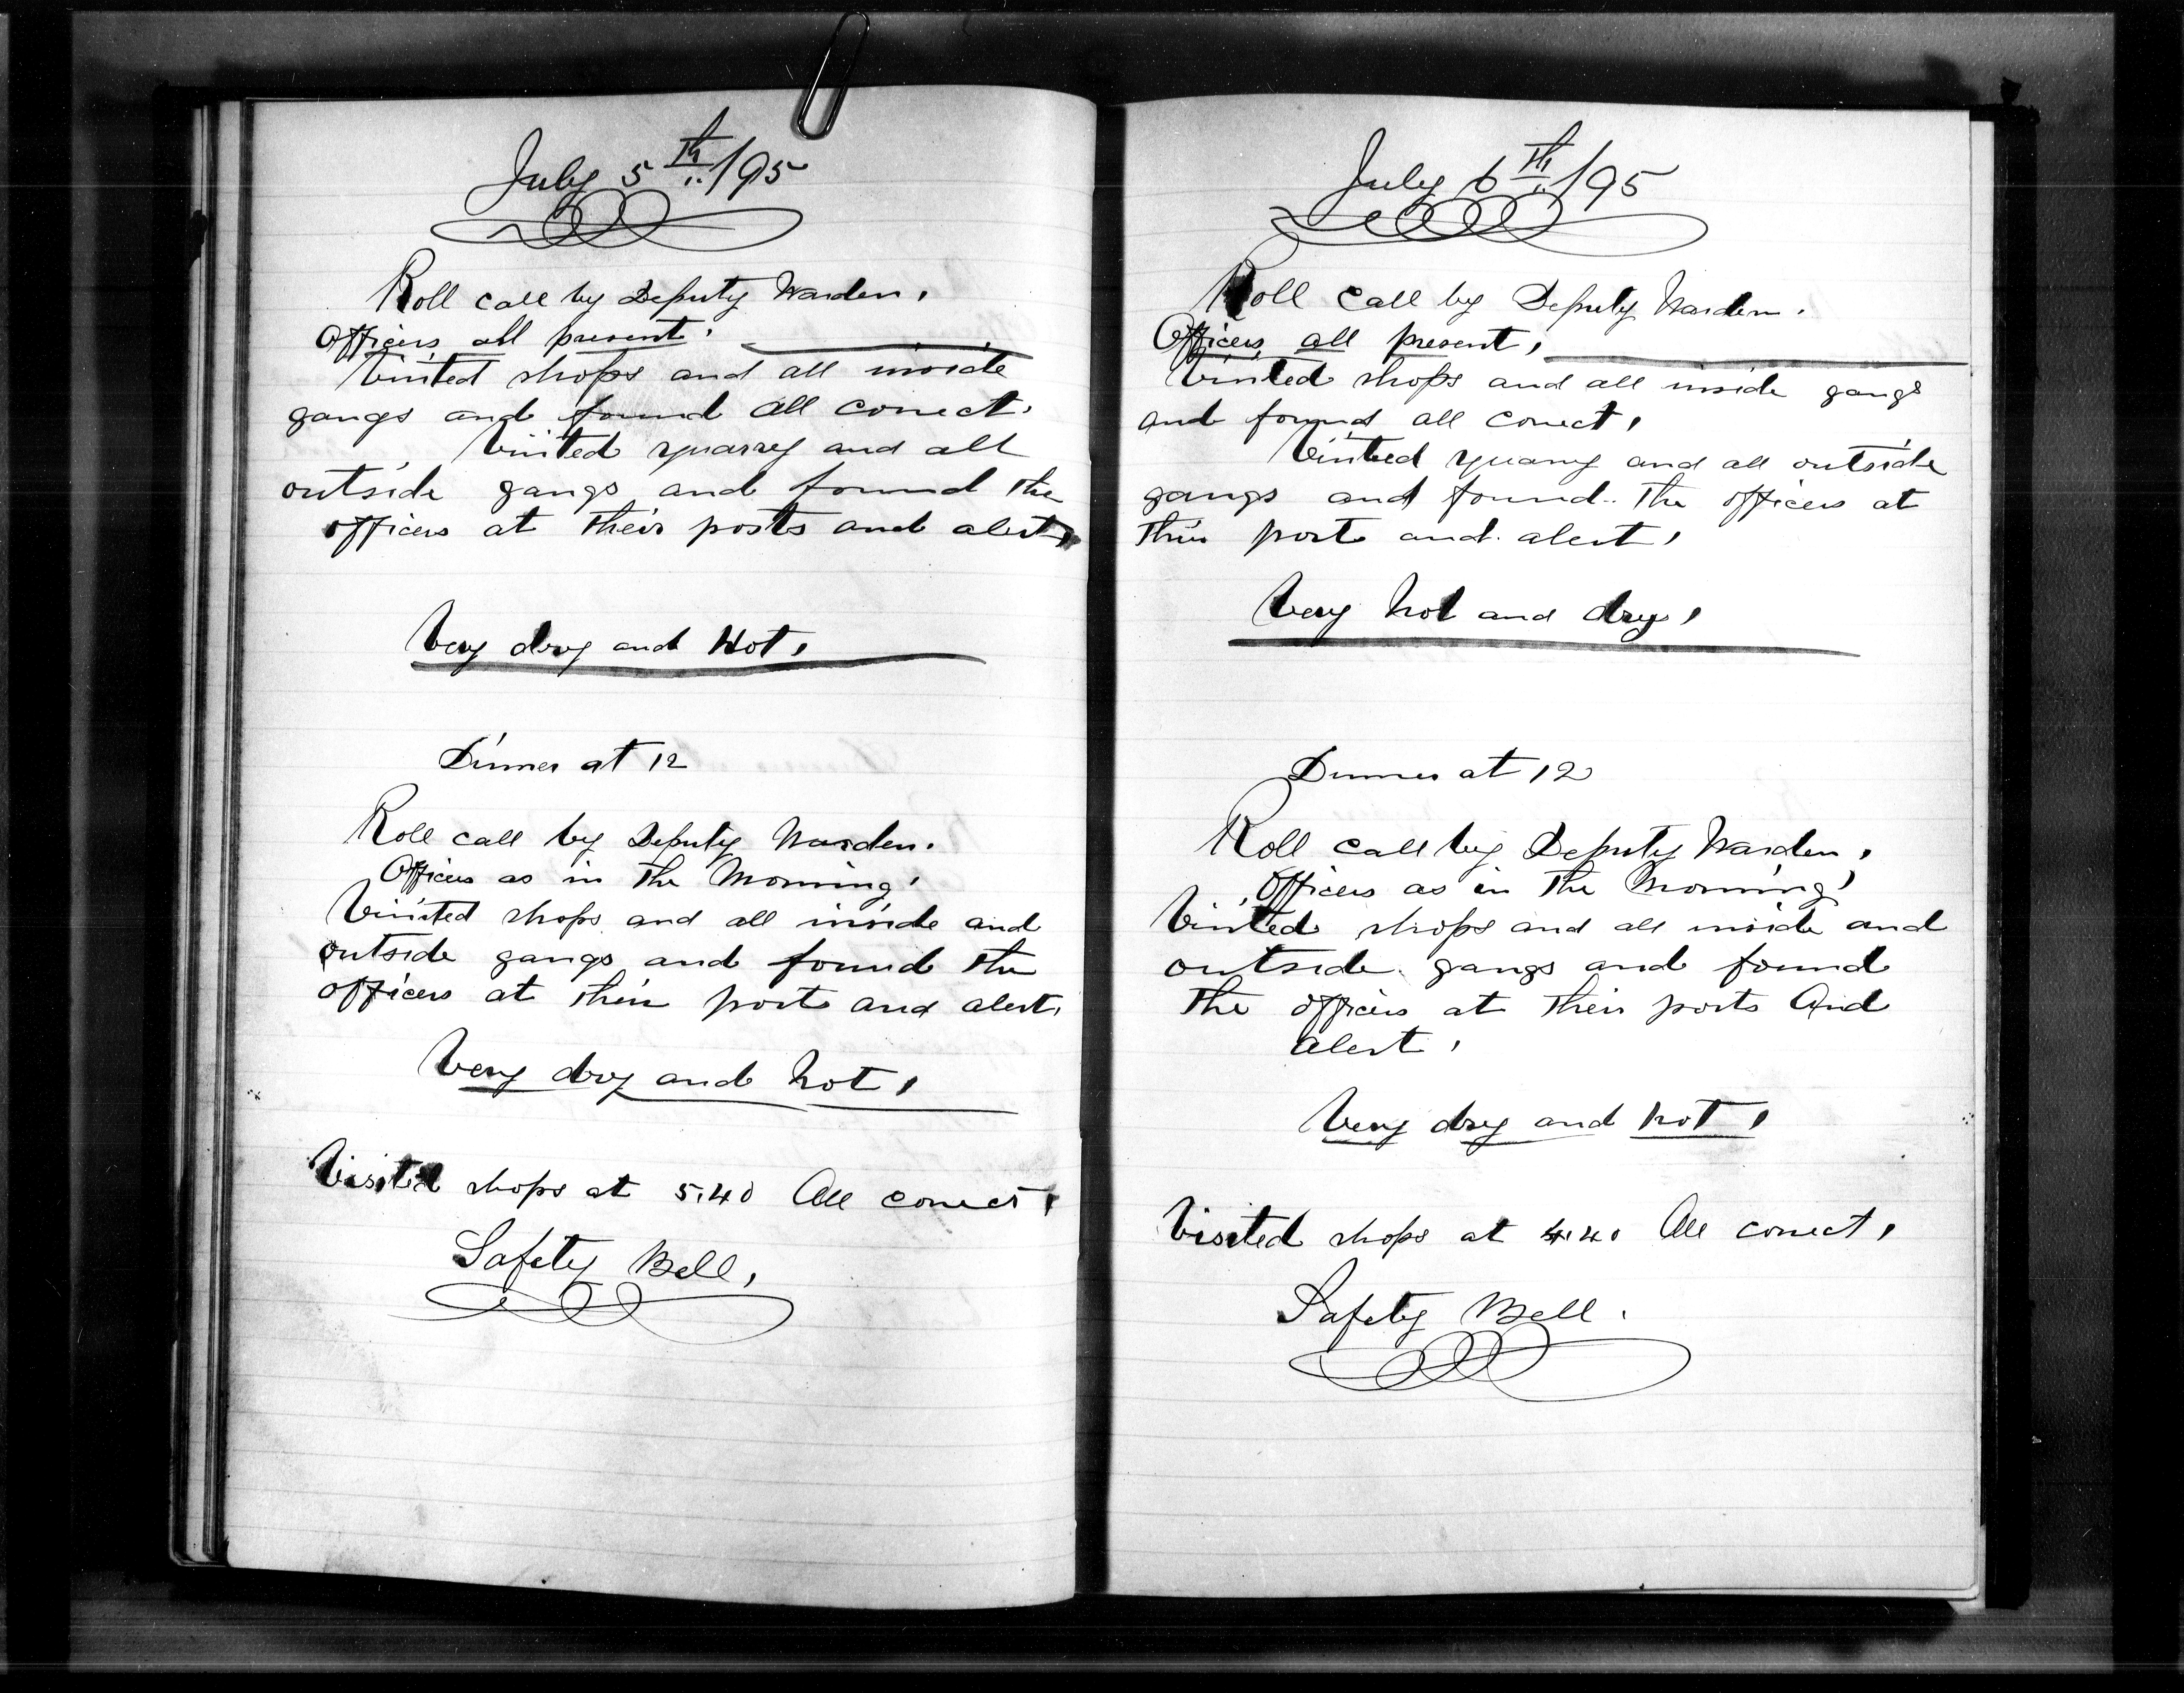 July 5th /95
Roll call by Deputy Warden.
Officers all present.
Visited shops and all inside
gangs and found all correct.
Visited quarry and all
outside gangs and found the
officers at their posts and alert,
Very dry and Hot,
Dinner at 12
Roll call by Deputy Warden.
Officers as in the Morning,
Visited shops and all inside and
outside gangs and found the
officers at their posts and alert,
Very dry and hot,
Visited shops at 5.40 All correct,
Safety Bell,
July 6th /95
Roll call by Deputy Warden.
Officers all present,
Visited shops and all inside gangs
and found all correct,
Visited quarry and all outside
gangs and found the officers at
their posts and alert,
Very hot and dry,
Dinner at 12
Roll call by Deputy Warden,
Officers as in the Morning,
Visited shops and all inside and
outside gangs and found
the officers at their posts And
alert,
Very dry and hot,
Visited shops at 4.40 All correct,
Safety Bell.